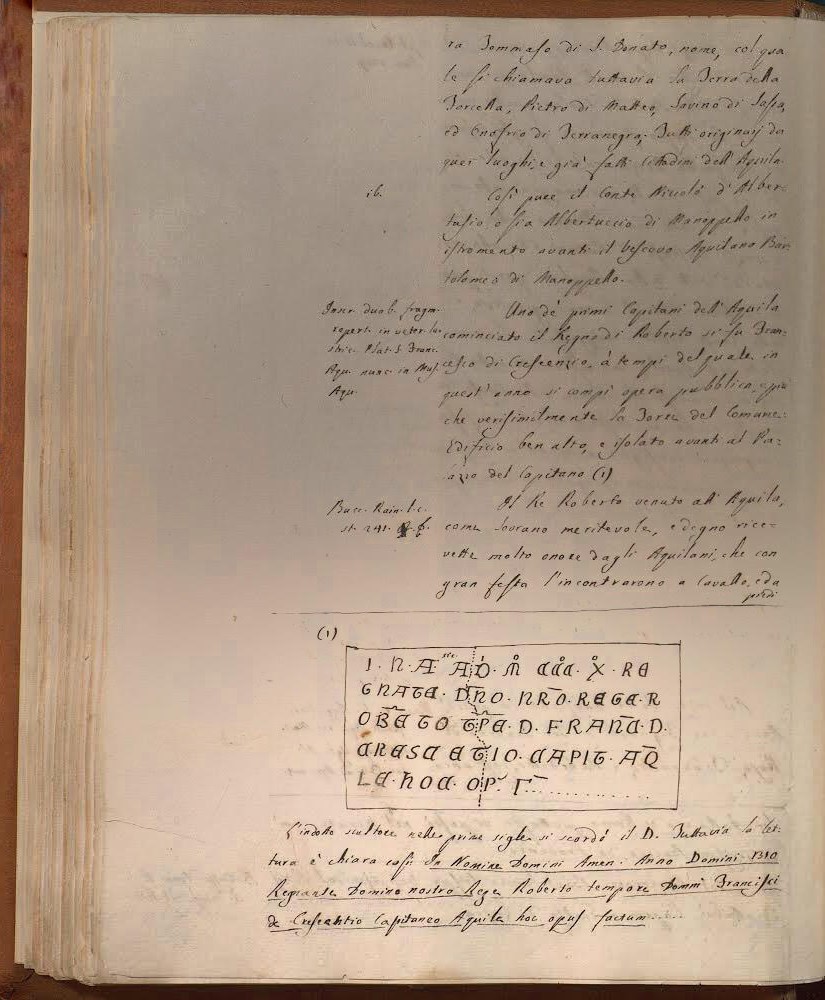 ra Tommaso di S. Donato, nome, col qua
le si chiamava tuttavia la Terra della
Torcella, Pietro di Matteo, Savino di Sassa,
ed Onofrio di Terranegra. Tutti originarj da
quei luoghi, e già fatti Cittadini dell'Aquila.
ib.
Così pure il Conte Niccolò d'Alber:
tusio o sia Albertuccio di Manoppello in
istromento avanti il Vescovo Aquilano Bar:
tolomeo di Manoppello.
Inscr. duob. fragm.
repert. in veter.
stric. Plat. S. Franc.
Aqu. nunc in Mus.
Aqu.
Uno de' primi Capitani dell'Aquila
cominciato il Regno di Roberto si fu Fran:
cesco di Crescenzio, à tempi del quale in
quest'anno si compì opera pubblica,
che verisimilmente fu la Torre del Comune:
Edificio ben alto, e isolato avanti al Pa:
lazzo del Capitano (1)
Bucc. Rain. l. c.
st. 241.
Il Re Roberto venuto all'Aquila,
come sovrano meritevole, e degno rice=
vette molto onore dagli Aquilani, che con
gran festa l'incontrarono a Cavallo, e da
piedi
(1)
I. N. A. AD. M CCC. X. RE
GNATE. DNO. NRO. REGE. R
OBETO TPE. D. FRANC. D.
CRESCETIO. CAPIT. AQ
LE. HOC. OP. F..........
L'indotto scultore nelle prime sigle si scordò il D. Tuttavia la let:
tura è chiara così: In Nomine Domini Amen: Anno Domini 1310
Regnante Domino nostro Rege Roberto tempore Domni Francisci
de Crescentio Capitaneo Aquile hoc opus factum......